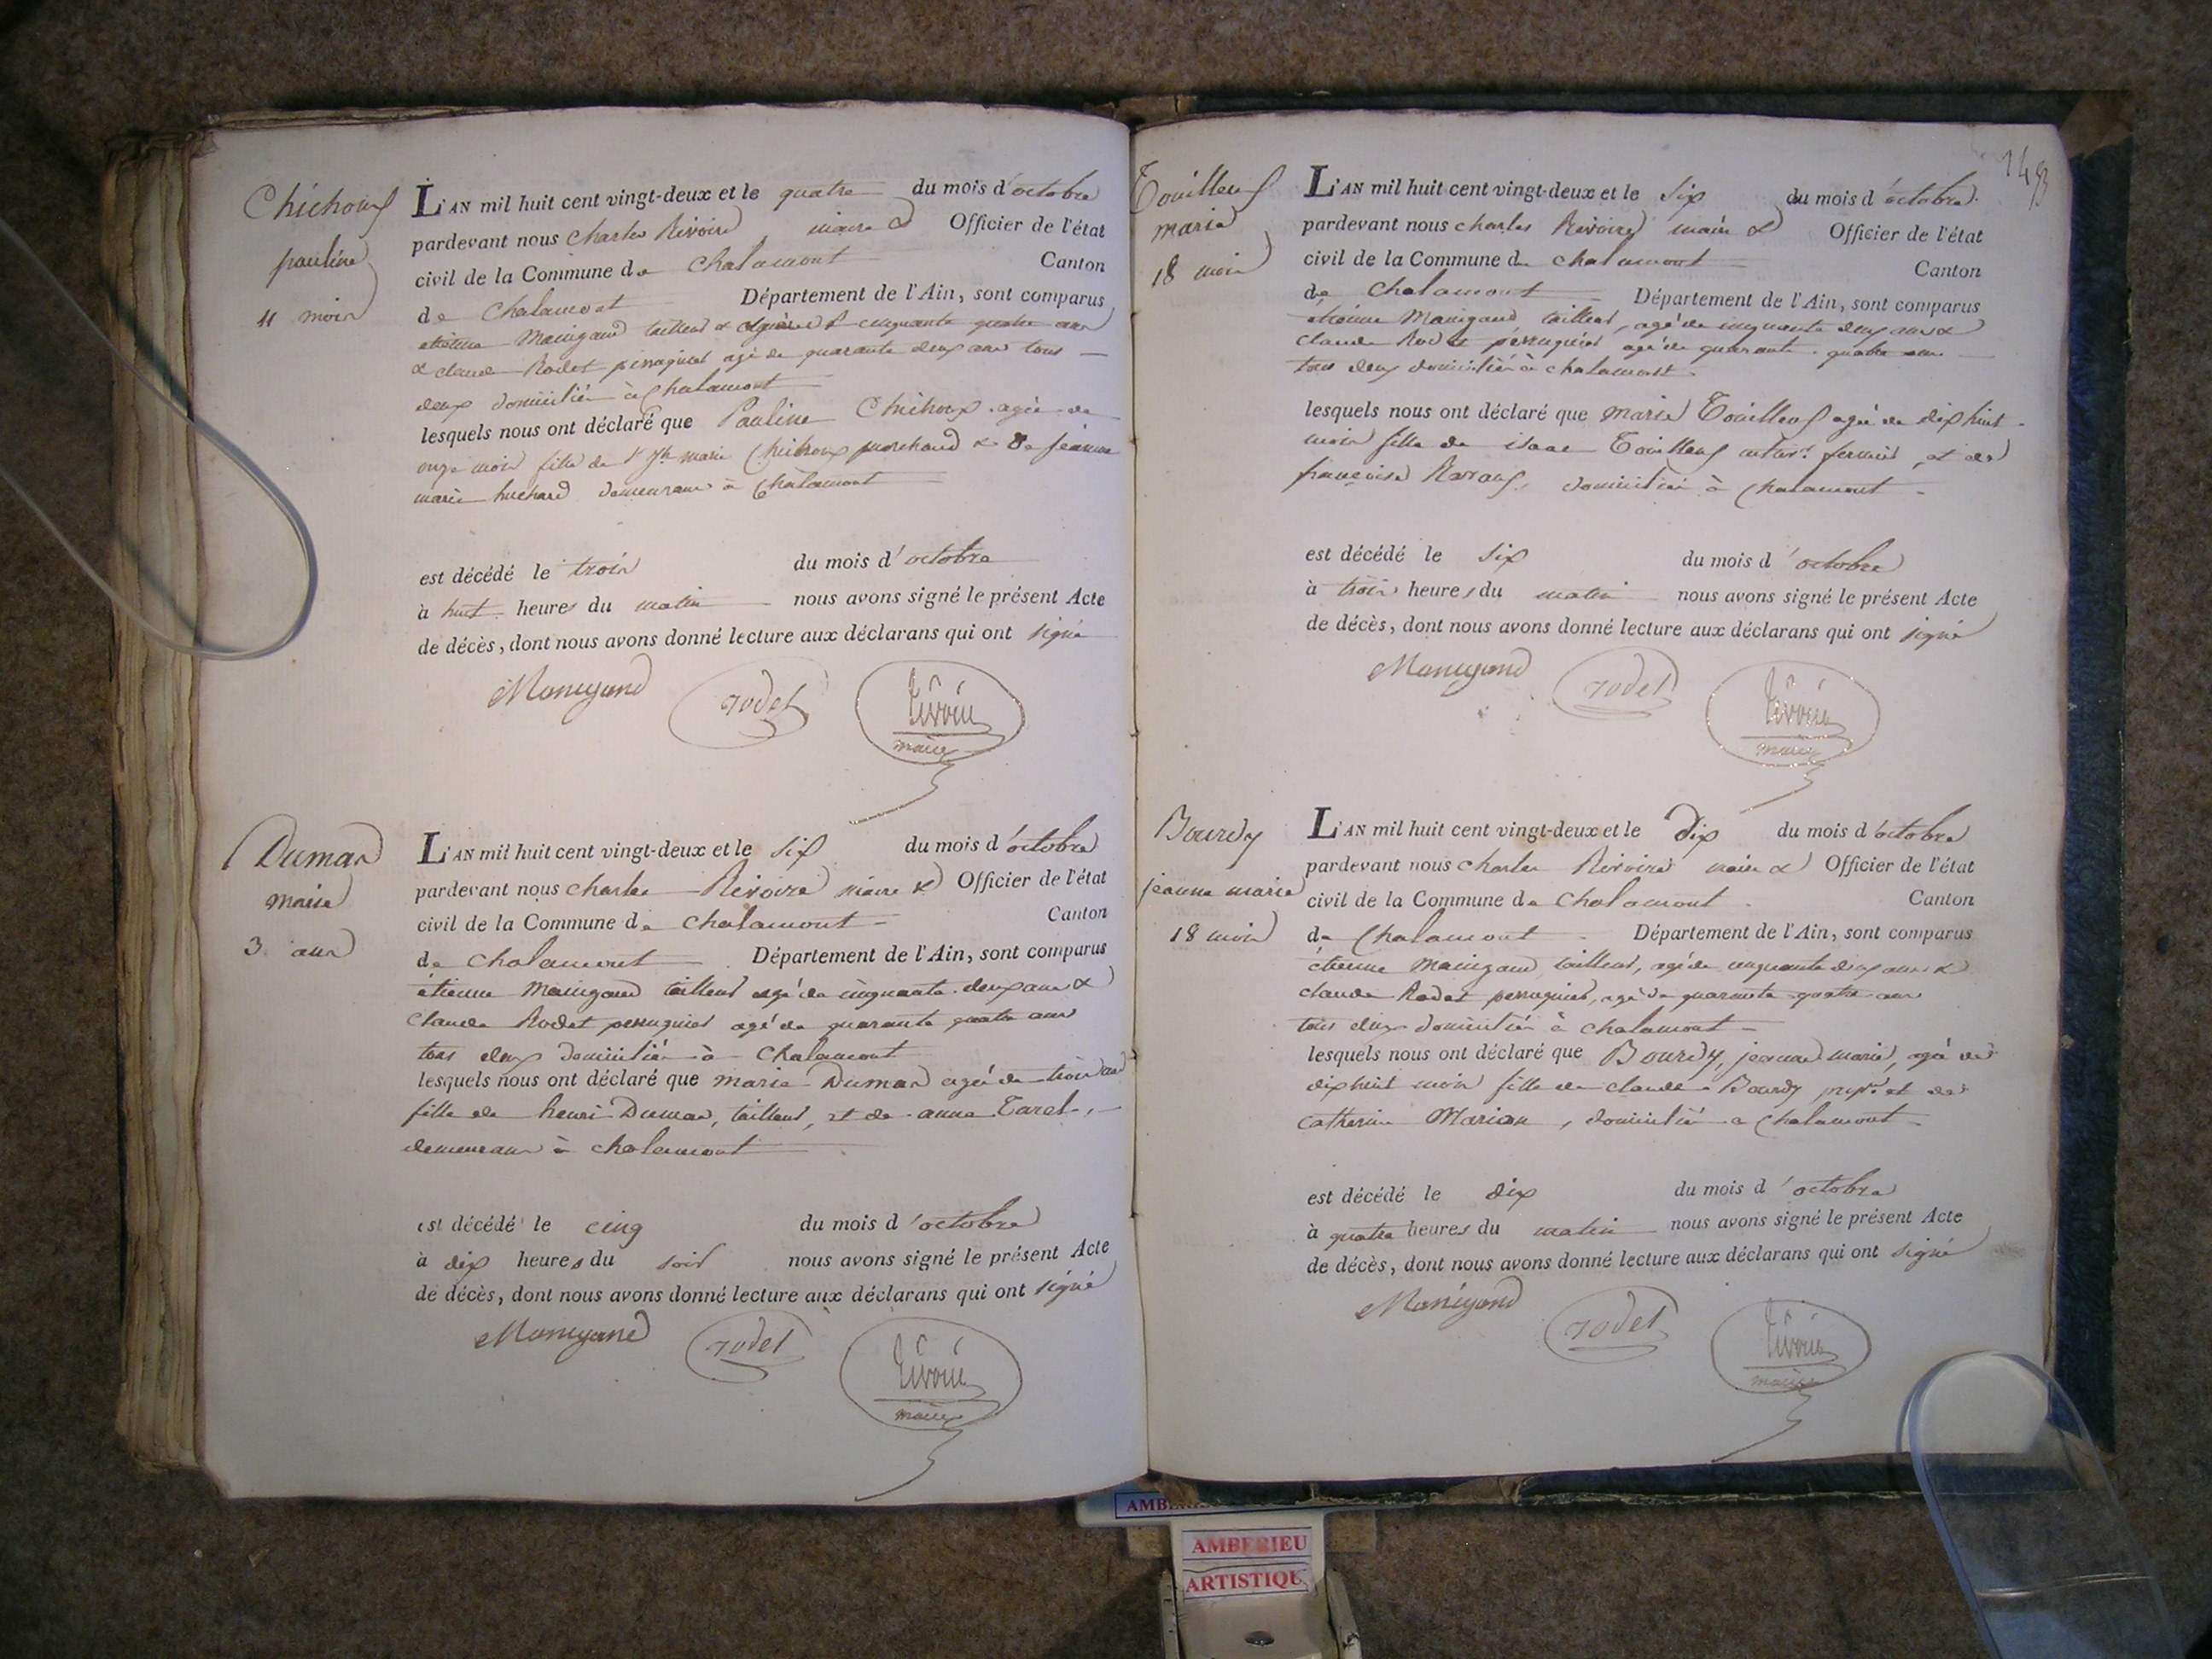 Chichoux
pauline
11 mois
L'AN mil huit cent vingt-deux et le quatre du mois d'octobre
pardevant nous Charles Rivoire maire & Officier de l'état
civil de la Commune de Chalamont Canton
de Chalamont Département de l'Ain, sont comparus
etienne Manigand tailleur cinquante quatre ans
& claude Rodet perruquier agé de quarante deux ans tous
deux domiciliés à Chalamont
lesquels nous ont déclaré que Pauline Chichoux agée de
onze mois fille de Sr Jh marie Chichoux marchand & de jeanne
marie demeurans à Chalamont
est décédé le trois du mois d'octobre
à huit heures du matin nous avons signé le présent Acte
de décès, dont nous avons donné lecture aux déclarans qui ont signé
Manigand rodet rivoire
maire
Dumas
marie
3 ans
L'AN mil huit cent vingt-deux et le six du mois d'octobre
pardevant nous Charles Rivoire maire & Officier de l'état
civil de la Commune de Chalamont Canton
de Chalamont Département de l'Ain, sont comparus
étienne Manigand tailleur agé de cinquante deux ans &
Claude Rodet perruquier agé de quarante quatre ans
tous deux domiciliés à Chalamont
lesquels nous ont déclaré que marie Dumas agée de trois ans
fille de henri Dumas, tailleur, et de anne Taret,
demeurans à chalamont
est décédé le cinq du mois d'octobre
à dix heures du soir nous avons signé le présent Acte
de décès, dont nous avons donné lecture aux déclarans qui ont signé
Manigand rodet rivoire
maire
149
Touilleux
marie
18 mois
L'AN mil huit cent vingt-deux et le six du mois d'octobre
pardevant nous charles Rivoire maire & Officier de l'état
civil de la Commune de chalamont Canton
de Chalamont Département de l'Ain, sont comparus
étienne Manigand tailleur, agé de cinquante deux ans &
Claude Rodet perruquier agé de quarante quatre ans
tous deux domiciliés à chalamont
lesquels nous ont déclaré que marie Touilleux agée de dix huit
mois fille de isaac Touilleux fermier, et de
françoise domiciliés à Chalamont
est décédé le six du mois d'octobre
à trois heures du matin nous avons signé le présent Acte
de décès, dont nous avons donné lecture aux déclarans qui ont signé
Manigand rodet rivoire
maire
Bourdy
jeanne marie
18 mois
L'AN mil huit cent vingt-deux et le Dix du mois d'octobre
pardevant nous charles Rivoire maire & Officier de l'état
civil de la Commune de Chalamont Canton
de Chalamont Département de l'Ain, sont comparus
étienne Manigand tailleur, agé de cinquante deux ans &
claude Rodet perruquier, agé de quarante quatre ans
tous deux domiciliés à chalamont
lesquels nous ont déclaré que Bourdy, jeanne marie, agée de
dix huit mois fille de claude Bourdy propre et de
catherine Marion, domiciliés à Chalamont
est décédé le dix du mois d'octobre
à quatre heures du matin nous avons signé le présent Acte
de décès, dont nous avons donné lecture aux déclarans qui ont signé
Manigand rodet rivoire
maire
AMBERIEU
ARTISTIQU